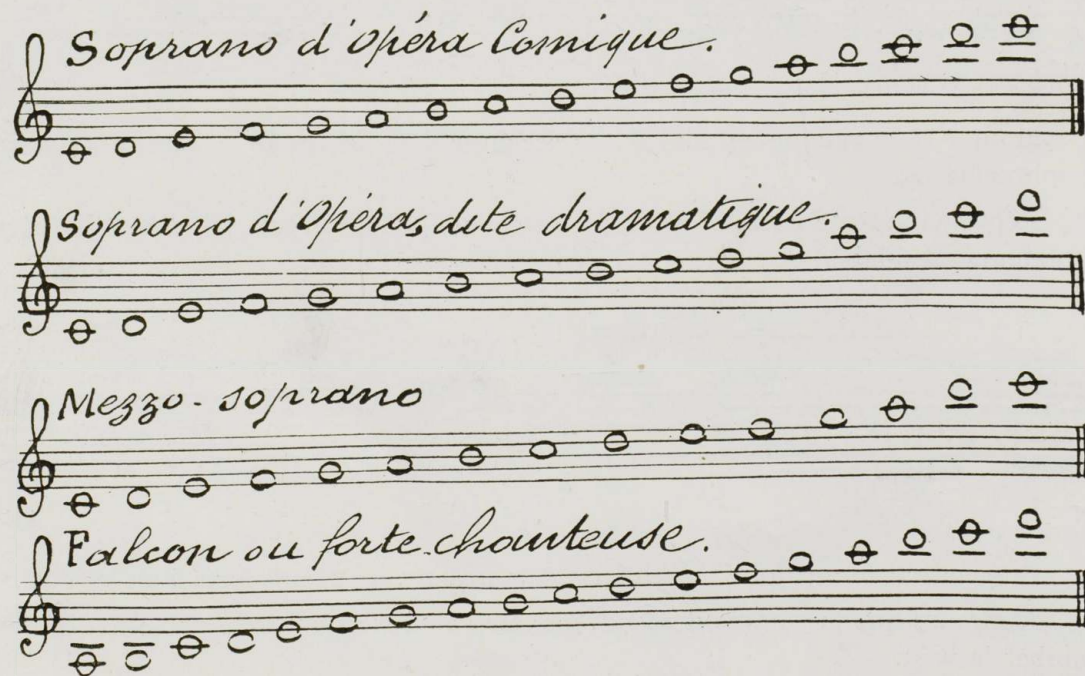 Soprano d'Opéra Comique.
Soprano d'Opéra, dite dramatique.
Mezzo-soprano
Falcon ou forte chanteuse.